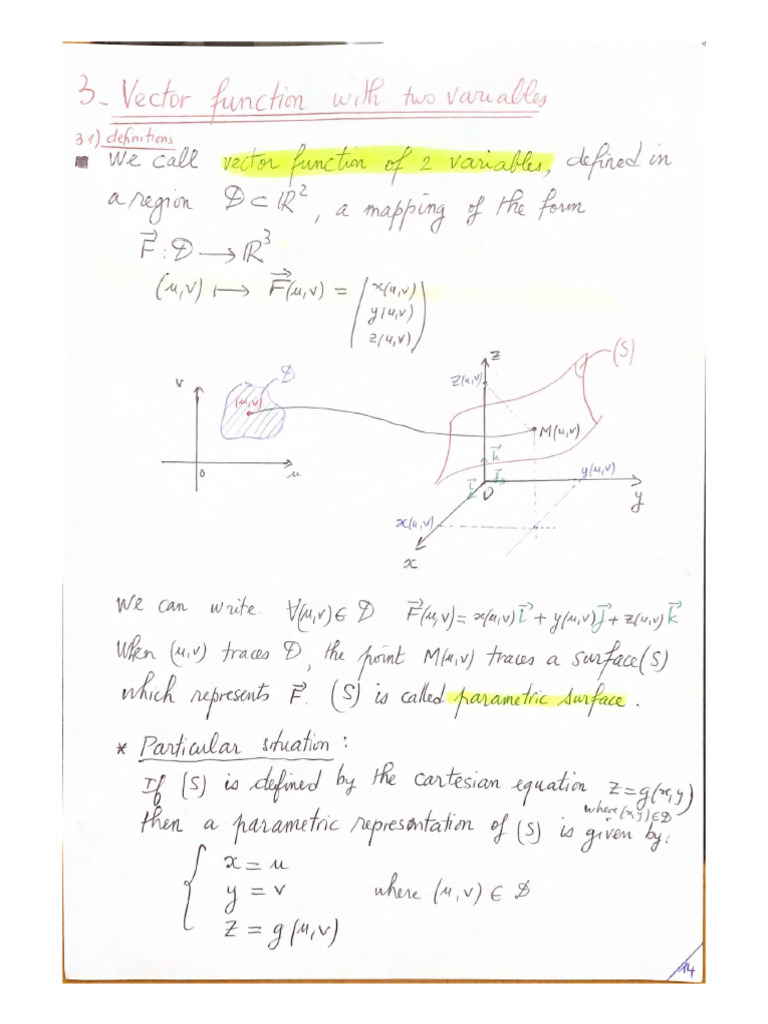 3- Vector function with two variables
3.1) definitions
■ We call vector function of 2 variables, defined in
a region D ⊂ ℝ², a mapping of the form
F⃗ : D ⟶ ℝ³
(u,v) ⟼ F⃗(u,v) = (x(u,v)
y(u,v)
z(u,v))
v
D
(u,v)
0
u
z
(S)
z(u,v)
M(u,v)
k⃗
y(u,v)
i⃗
j⃗
O
y
x(u,v)
x
We can write ∀(u,v) ∈ D F⃗(u,v) = x(u,v) i⃗ + y(u,v) j⃗ + z(u,v) k⃗
When (u,v) traces D, the point M(u,v) traces a surface (S)
which represents F⃗. (S) is called parametric surface.
* Particular situation :
If (S) is defined by the cartesian equation z = g(x,y)
where (x,y) ∈ D
then a parametric representation of (S) is given by:
{ x = u
y = v where (u,v) ∈ D
z = g(u,v)
14